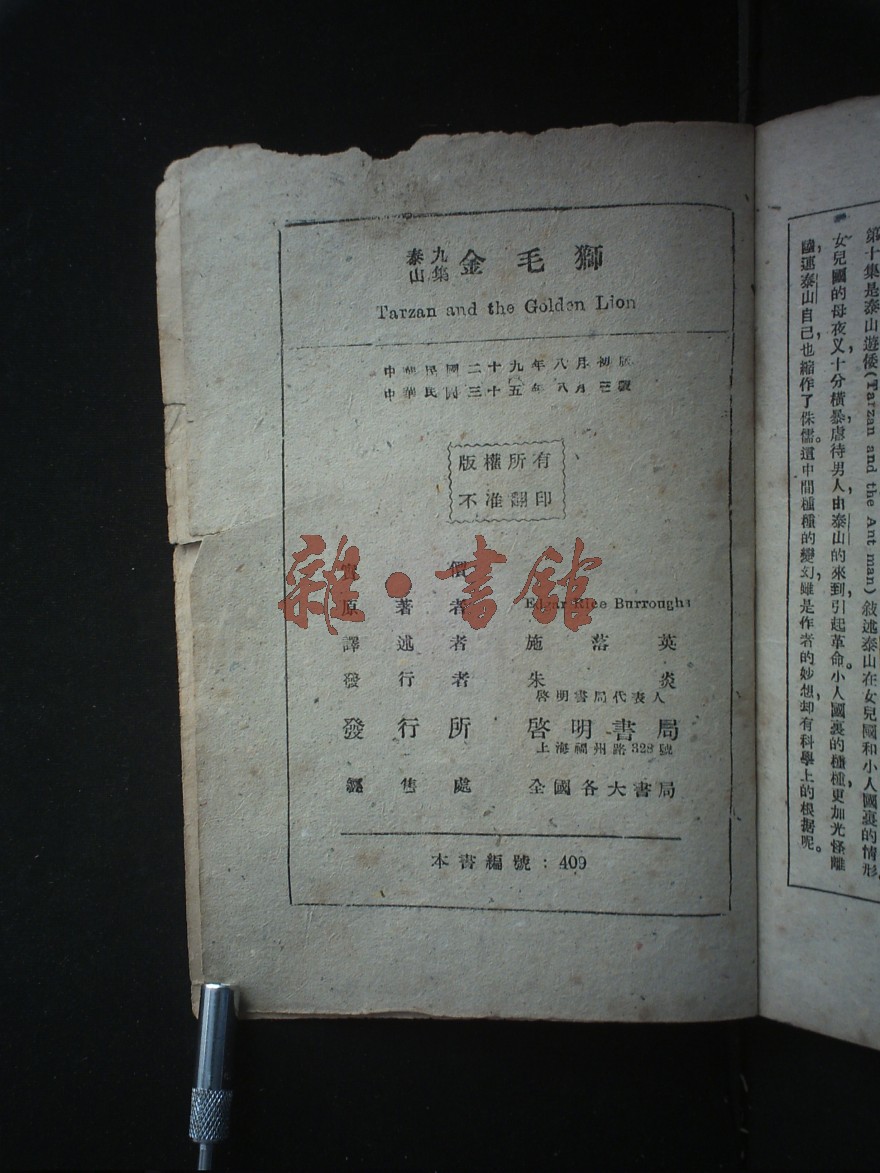 泰山九集 金毛獅
Tarzan and the Golden Lion
中華民國二十九年八月初版
中華民國三十五年八月三版
版權所有
不准翻印
雜·書館
實價
原著者 Edgar Rice Burroughs
譯述者 施落英
發行者 朱炎
啓明書局代表人
發行所 啓明書局
上海福州路328號
經售處 全國各大書局
本書編號：409
第十集是泰山遊倭(Tarzan and the Ant man)敘述泰山在女兒國和小人國裏的情形，
女兒國的母夜叉，十分橫暴，虐待男人，由泰山的來到，引起革命。小人國裏的種種，更加光怪離
陸，連泰山自己也縮作了侏儒。這中間種種的變幻，雖是作者的妙想，却有科學上的根据呢。